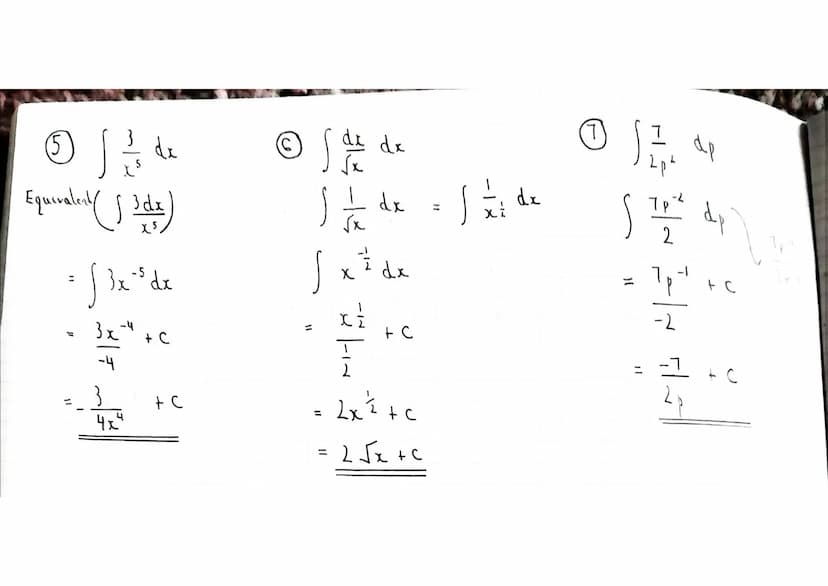 ⑤ ∫ 3/x⁵ dx
Equivalent (∫ 3dx/x⁵)
= ∫ 3x⁻⁵ dx
= 3x⁻⁴/-4 + c
= - 3/4x⁴ + c
⑥ ∫ dx/√x dx
∫ 1/√x dx = ∫ 1/x^½ dx
∫ x^-½ dx
= x^½/½ + c
= 2x^½ + c
= 2√x + c
⑦ ∫ 7/2p² dp
∫ 7p⁻²/2 dp
= 7p⁻¹/-2 + c
= -7/2p + c